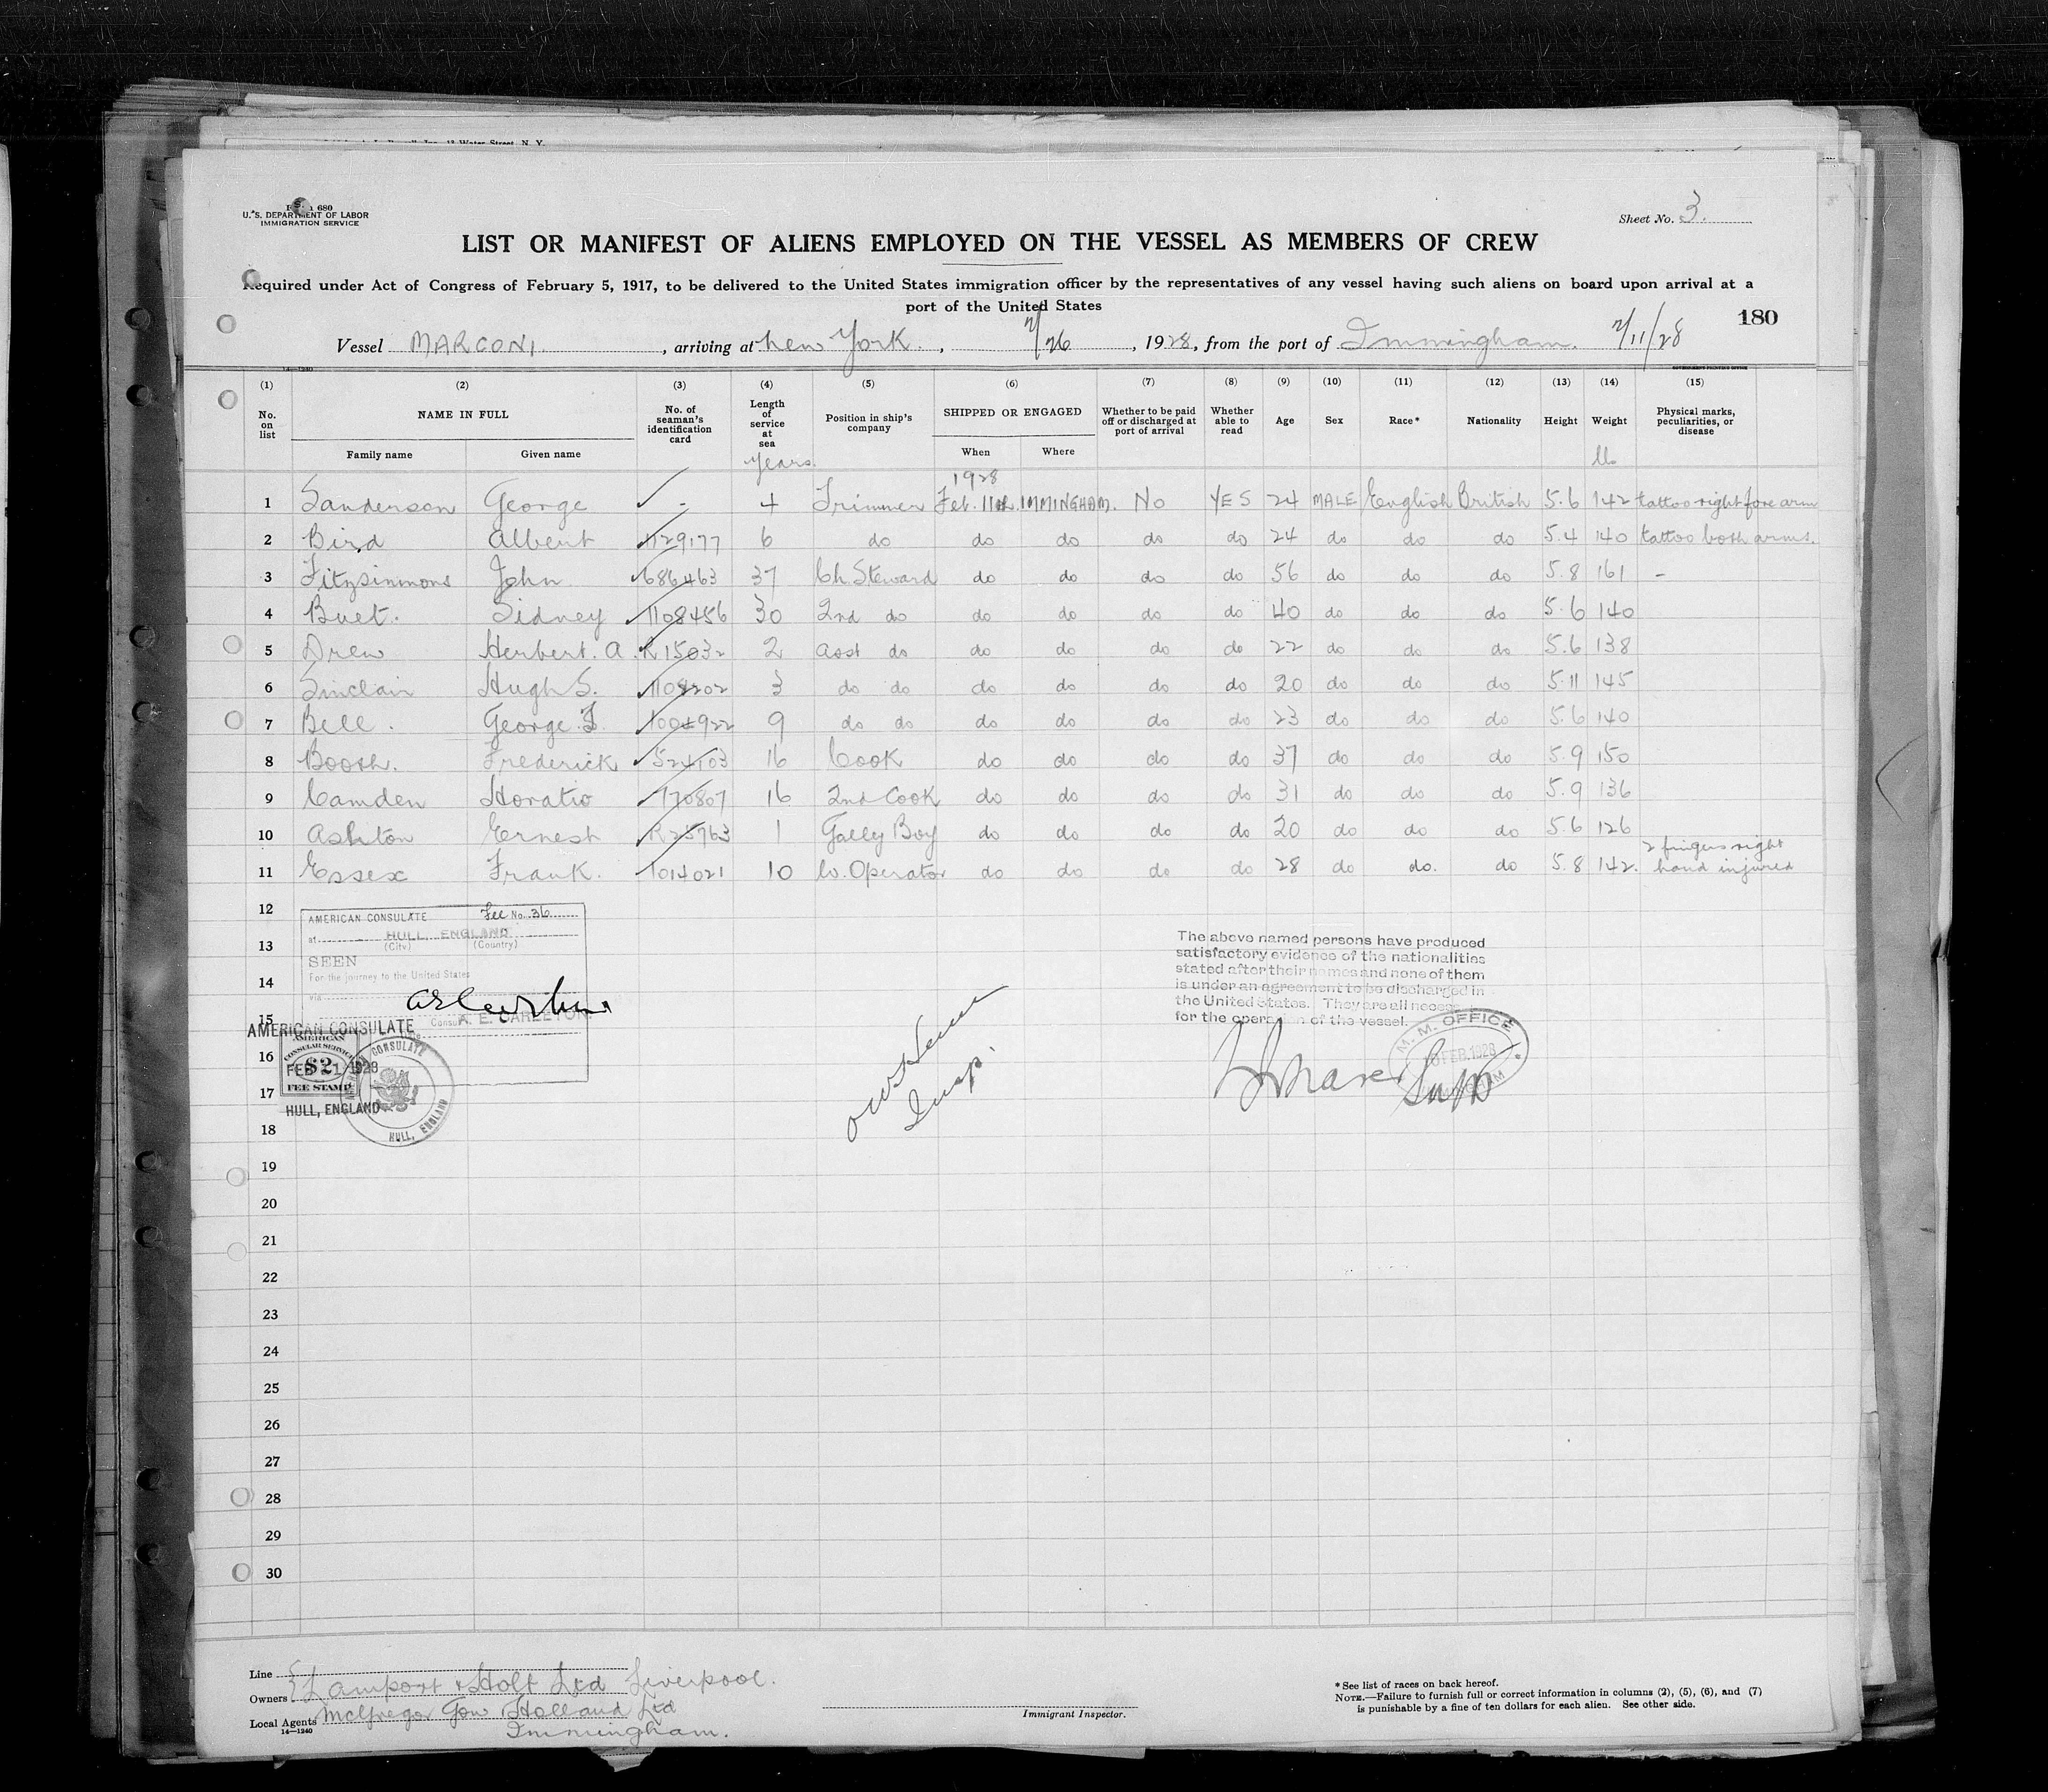 Form 680
U. S. DEPARTMENT OF LABOR
IMMIGRATION SERVICE
Sheet No. 3.
LIST OR MANIFEST OF ALIENS EMPLOYED ON THE VESSEL AS MEMBERS OF CREW
Required under Act of Congress of February 5, 1917, to be delivered to the United States immigration officer by the representatives of any vessel having such aliens on board upon arrival at a
port of the United States
180
Vessel MARCONI, arriving at New York, 2/26, 1928, from the port of Immingham. 2/11/28
14—1240
(1) (2) (3) (4) (5) (6) (7) (8) (9) (10) (11) (12) (13) (14) (15)
No. on list NAME IN FULL No. of seaman's identification card Length of service at sea Position in ship's company SHIPPED OR ENGAGED Whether to be paid off or discharged at port of arrival Whether able to read Age Sex Race* Nationality Height Weight Physical marks, peculiarities, or disease
Family name Given name years. When Where lb
1928
1 Sanderson George - 4 Trimmer Feb. 11th. IMMINGHAM. No YES 24 MALE English British 5.6 142 tattoo right fore arm
2 Bird Albert 1129177 6 do do do do do 24 do do do 5.4 140 tattoo both arms.
3 Fitzsimmons John 686463 37 Ch. Steward do do do do 56 do do do 5.8 161 -
4 Buet. Sidney 1108456 30 2nd do do do do do 40 do do do 5.6 140
5 Drew Herbert. A. R15032 2 Asst do do do do do 22 do do do 5.6 138
6 Sinclair Hugh S. 1108202 3 do do do do do do 20 do do do 5.11 145
7 Bell. George 1004922 9 do do do do do do 23 do do do 5.6 140
8 Booth. Frederick 524103 16 Cook do do do do 37 do do do 5.9 150
9 Camden Horatio 170807 16 2nd Cook do do do do 31 do do do 5.9 136
10 Ashton Ernest R25763 1 Galley Boy do do do do 20 do do do 5.6 126
2 fingers right
11 Essex Frank. 1014021 10 W. Operator do do do do 28 do do. do 5.8 142. hand injured
12
13
14
15
16
17
18
19
20
21
22
23
24
25
26
27
28
29
30
AMERICAN CONSULATE Fee No. 36
at HULL, ENGLAND
(City) (Country)
SEEN
For the journey to the United States
via
A. E. CARLETON
AMERICAN CONSULATE
AMERICAN
CONSULAR SERVICE
$2
FEB 11 1928
FEE STAMP
HULL, ENGLAND
AMERICAN CONSULATE
HULL, ENGLAND
The above named persons have produced
satisfactory evidence of the nationalities
stated after their names and none of them
is under an agreement to be discharged in
the United States. They are all neces
for the operation of the vessel.
M. M. OFFICE
10 FEB. 1928
IMMINGHAM
Supt
Insp.
Line
Owners Lamport & Holt Ltd Liverpool.
Local Agents McGregor Gow & Holland Ltd
14—1240
Immingham.
Immigrant Inspector.
* See list of races on back hereof.
NOTE.—Failure to furnish full or correct information in columns (2), (5), (6), and (7)
is punishable by a fine of ten dollars for each alien. See other side.